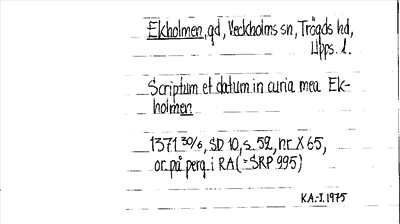 Ekholmen, gd, Veckholms sn, Trögds hd,
Upps. l.
Scriptum et datum in curia mea Ek-
holmen
1371 30/6, SD 10, s. 52, nr X 65,
or. på perg. i RA (=SRP 995)
K.A.-I. 1975